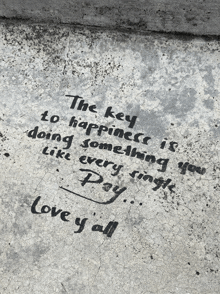 The key
to happiness is
doing something you
like every single
Day...
Love y'all